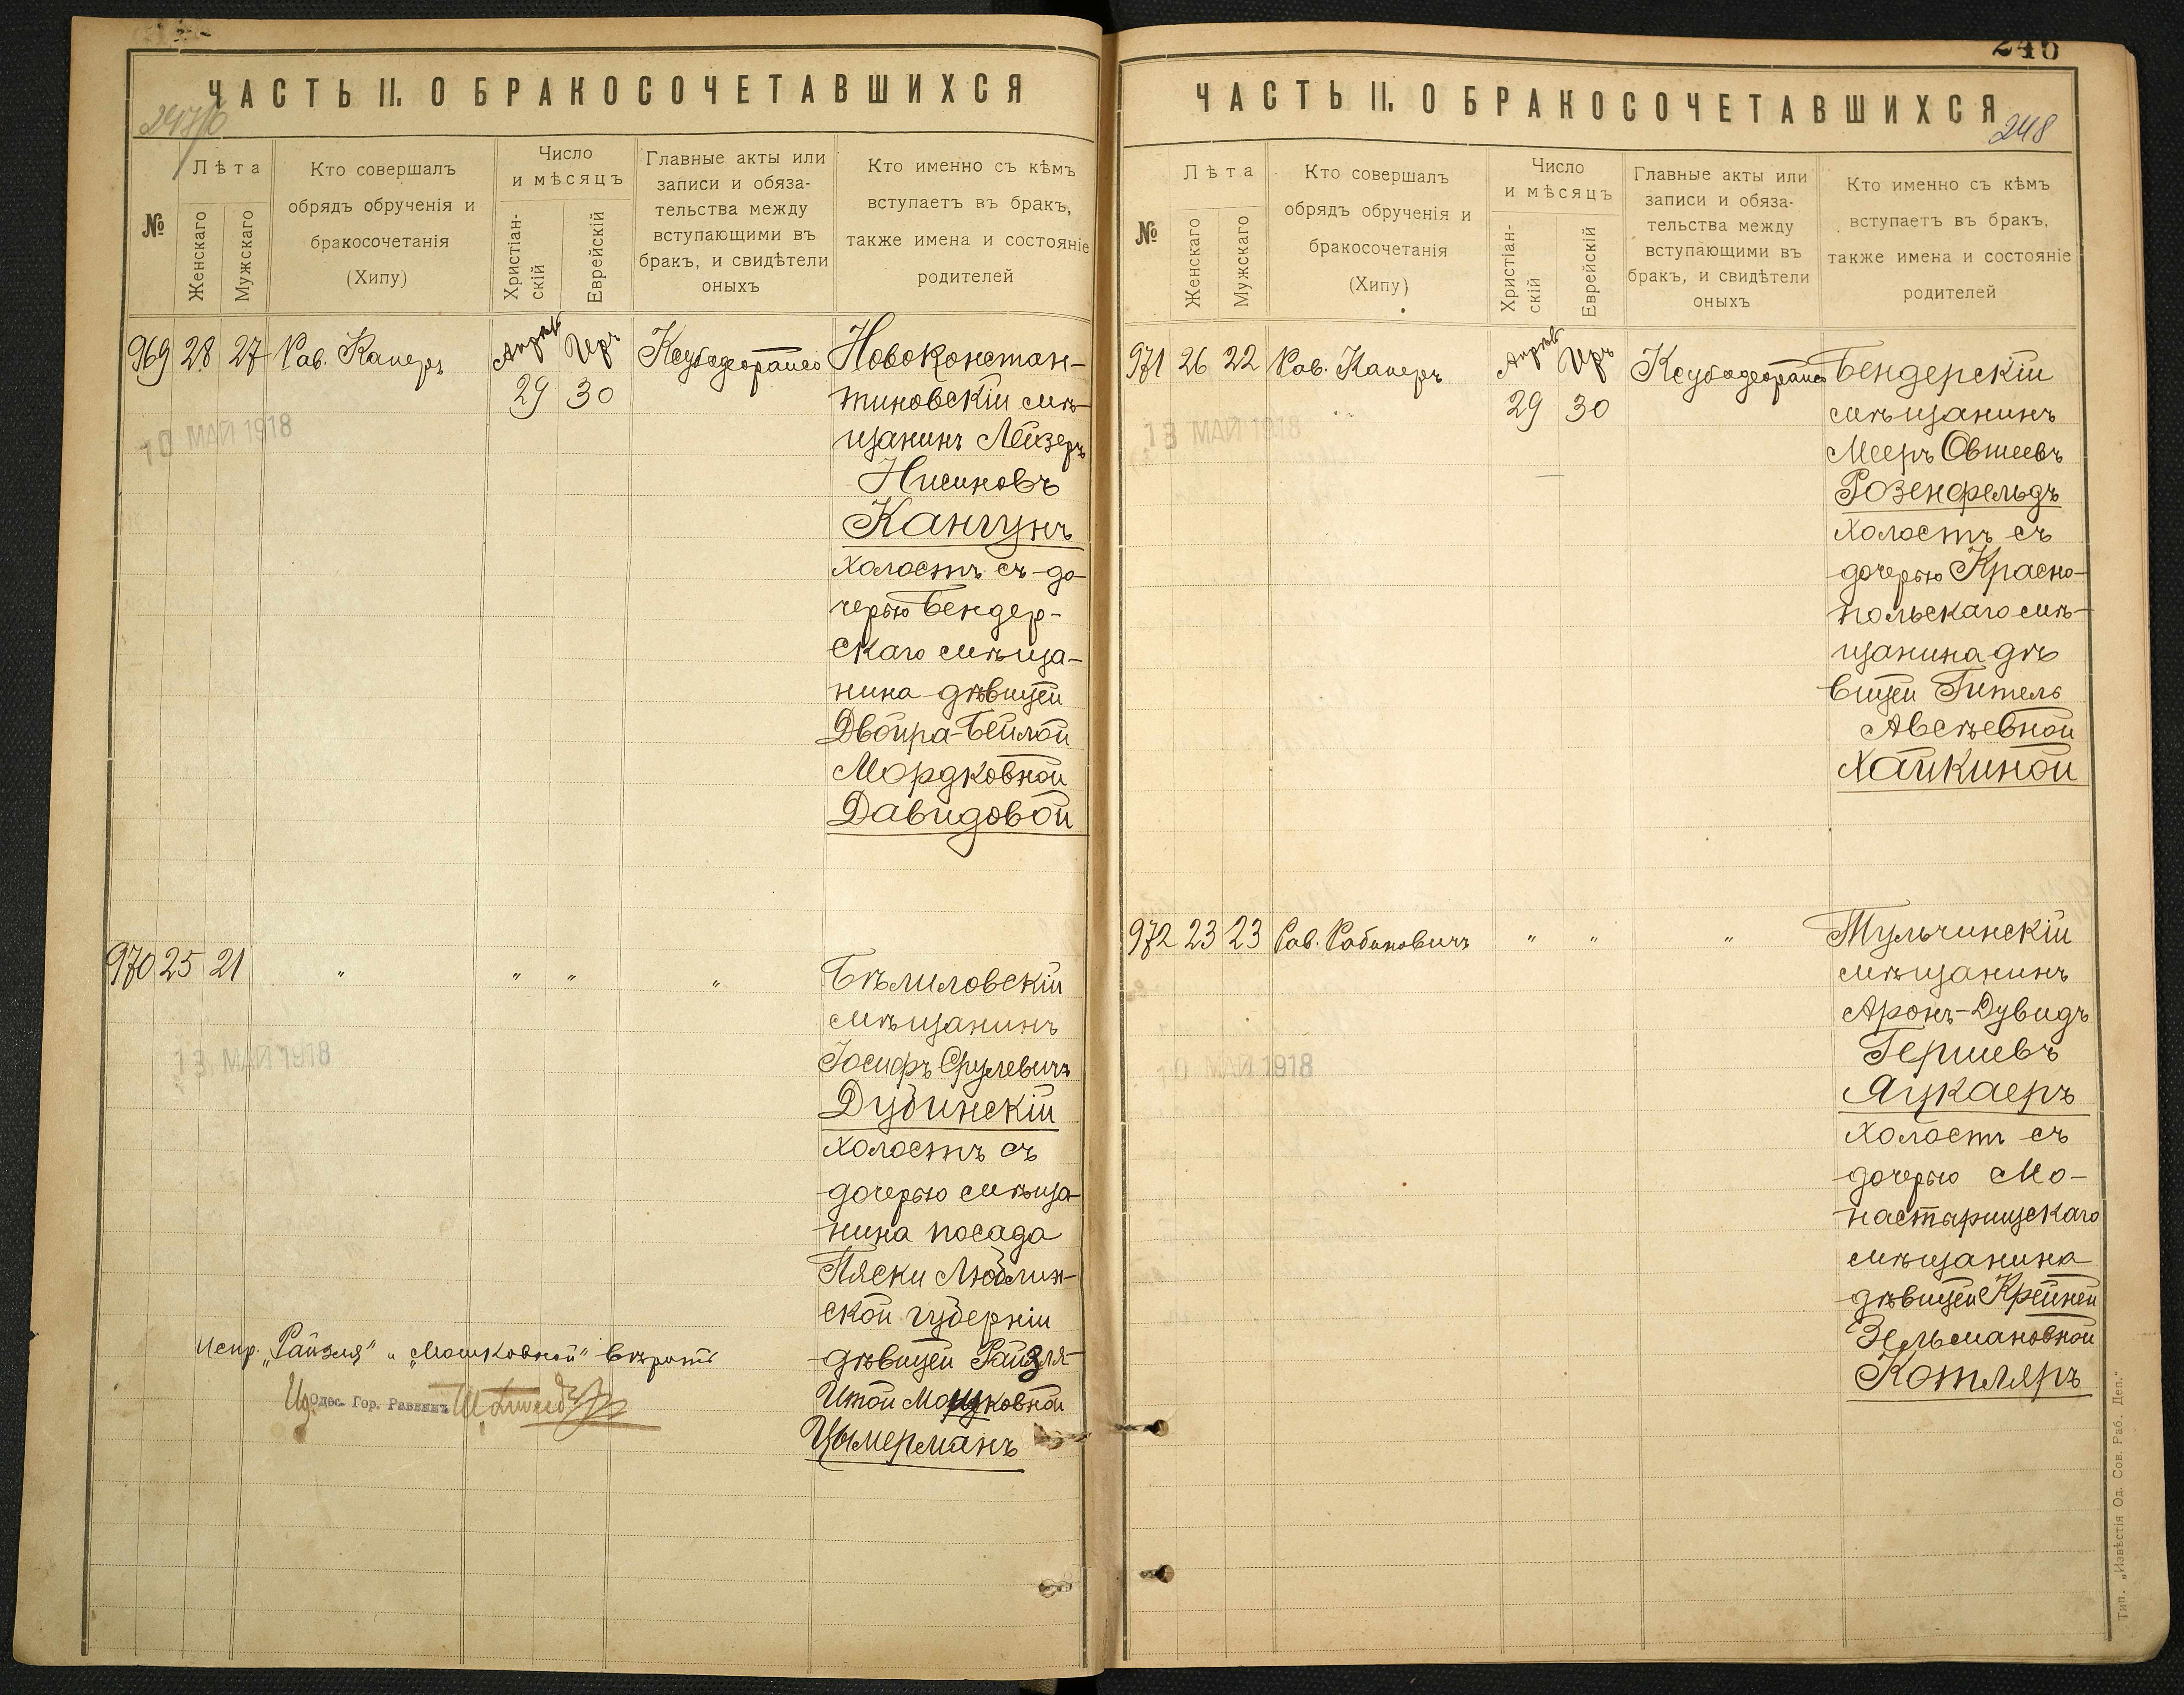 ЧАСТЬ II. О БРАКОСОЧЕТАВШИХСЯ
№
Лѣта
Женскаго
Мужскаго
Кто совершалъ
обрядъ обрученія и
бракосочетанія
(Хипу)
Число
и мѣсяцъ
Христіан-
скій
Еврейскій
Главные акты или
записи и обяза-
тельства между
вступающими въ
бракъ, и свидѣтели
оныхъ
Кто именно съ кѣмъ
вступаетъ въ бракъ,
также имена и состояніе
родителей
969 28 27 Рав. Каперъ
Апрѣль Іяръ
29 30
10 МАЙ 1918
Новоконстан-
тиновскій мѣ-
щанинъ Лейзеръ
Нисиновъ
Кангунъ
холостъ съ до-
черью Бендер-
скаго мѣща-
нина дѣвицей
Двойра-Бейлой
Мордковной
Давидовой
970 25 21 " " " "
13 МАЙ 1918
Бѣлиловскій
мѣщанинъ
Іосифъ Срулевичъ
Дубинскій
холостъ съ
дочерью мѣща-
нина посада
Пяски Люблин-
ской губерніи
дѣвицей Райзля-
Итой Мошковной
Цымерманъ
Испр. „Райзля" и „Мошковной" вѣрить
Одес. Гор. Раввинъ
ЧАСТЬ II. О БРАКОСОЧЕТАВШИХСЯ
248
№
Лѣта
Женскаго
Мужскаго
Кто совершалъ
обрядъ обрученія и
бракосочетанія
(Хипу)
Число
и мѣсяцъ
Христіан-
скій
Еврейскій
Главные акты или
записи и обяза-
тельства между
вступающими въ
бракъ, и свидѣтели
оныхъ
Кто именно съ кѣмъ
вступаетъ въ бракъ,
также имена и состояніе
родителей
971 26 22 Рав. Каперъ
Апрѣль Іяръ
29 30
13 МАЙ 1918
Бендерскій
мѣщанинъ
Мееръ Овшеевъ
Розенфельдъ
холостъ съ
дочерью Красно-
польскаго мѣ-
щанина дѣ
вицей Гитель
Авсѣевной
Хайкиной
972 23 23 Рав. Рабиновичъ " " "
10 МАЙ 1918
Тульчинскій
мѣщанинъ
Аронъ-Дувидъ
Гершевъ
Яцкаеръ
холостъ съ
дочерью Мо-
настырищскаго
мѣщанина
дѣвицей Крейней
Зельмановной
Котляръ
Тип. „Извѣстія Од. Сов. Раб. Деп."